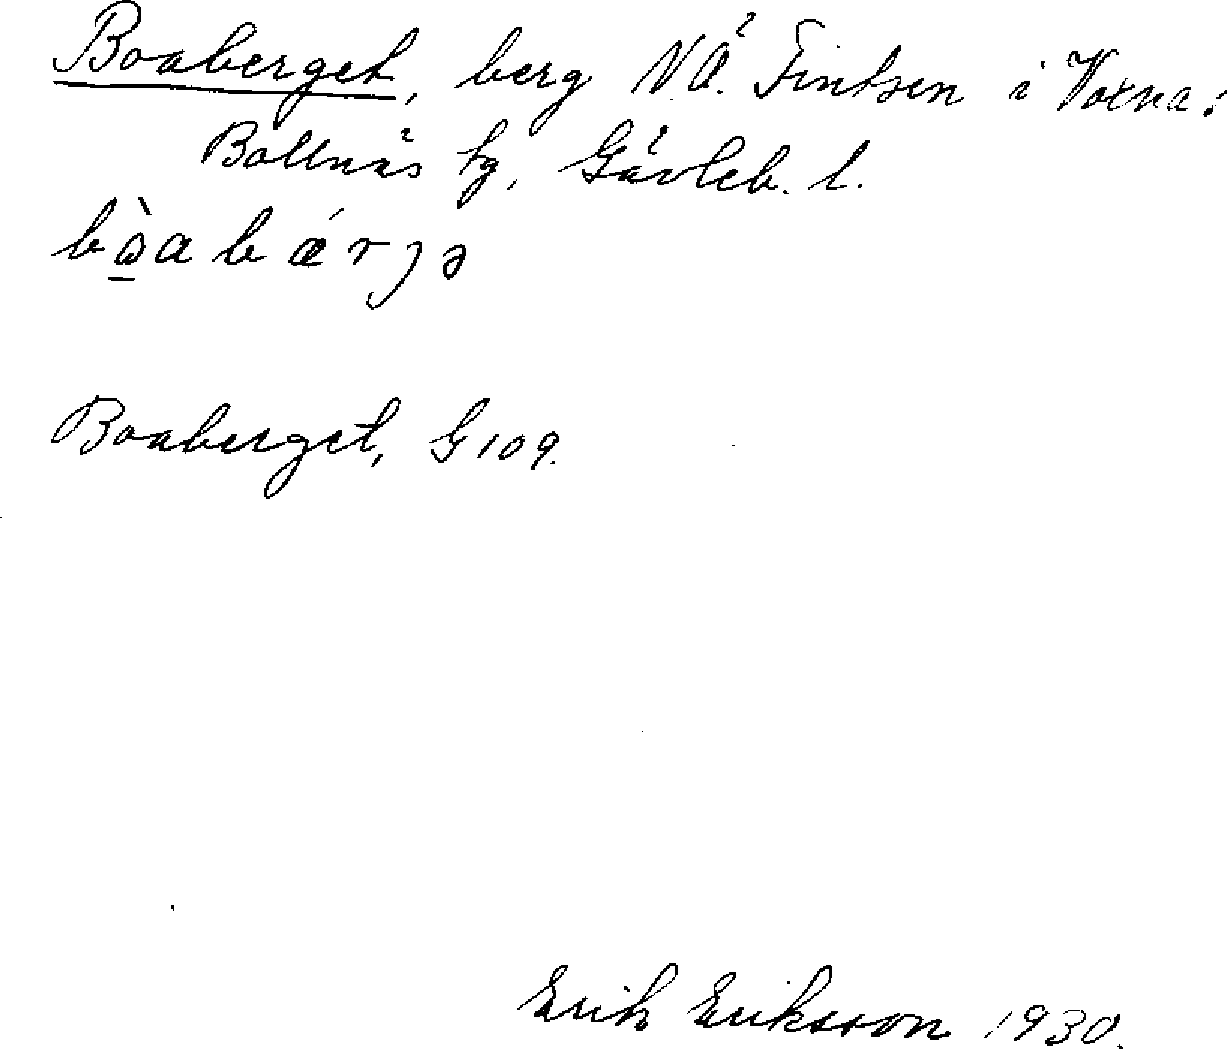 Boaberget, berg N.Ö. Fintsen i Voxna:
Bollnäs tg, Gävleb. l.
bɷ̀abǽrjə
Boaberget, G 109.
Erik Eriksson 1930.